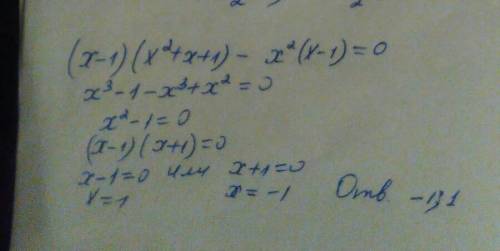 (x-1)(x²+x+1) - x²(x-1)=0
x³-1-x³+x²=0
x²-1=0
(x-1)(x+1)=0
x-1=0 или x+1=0
x=1 x=-1 Отв. -1;1